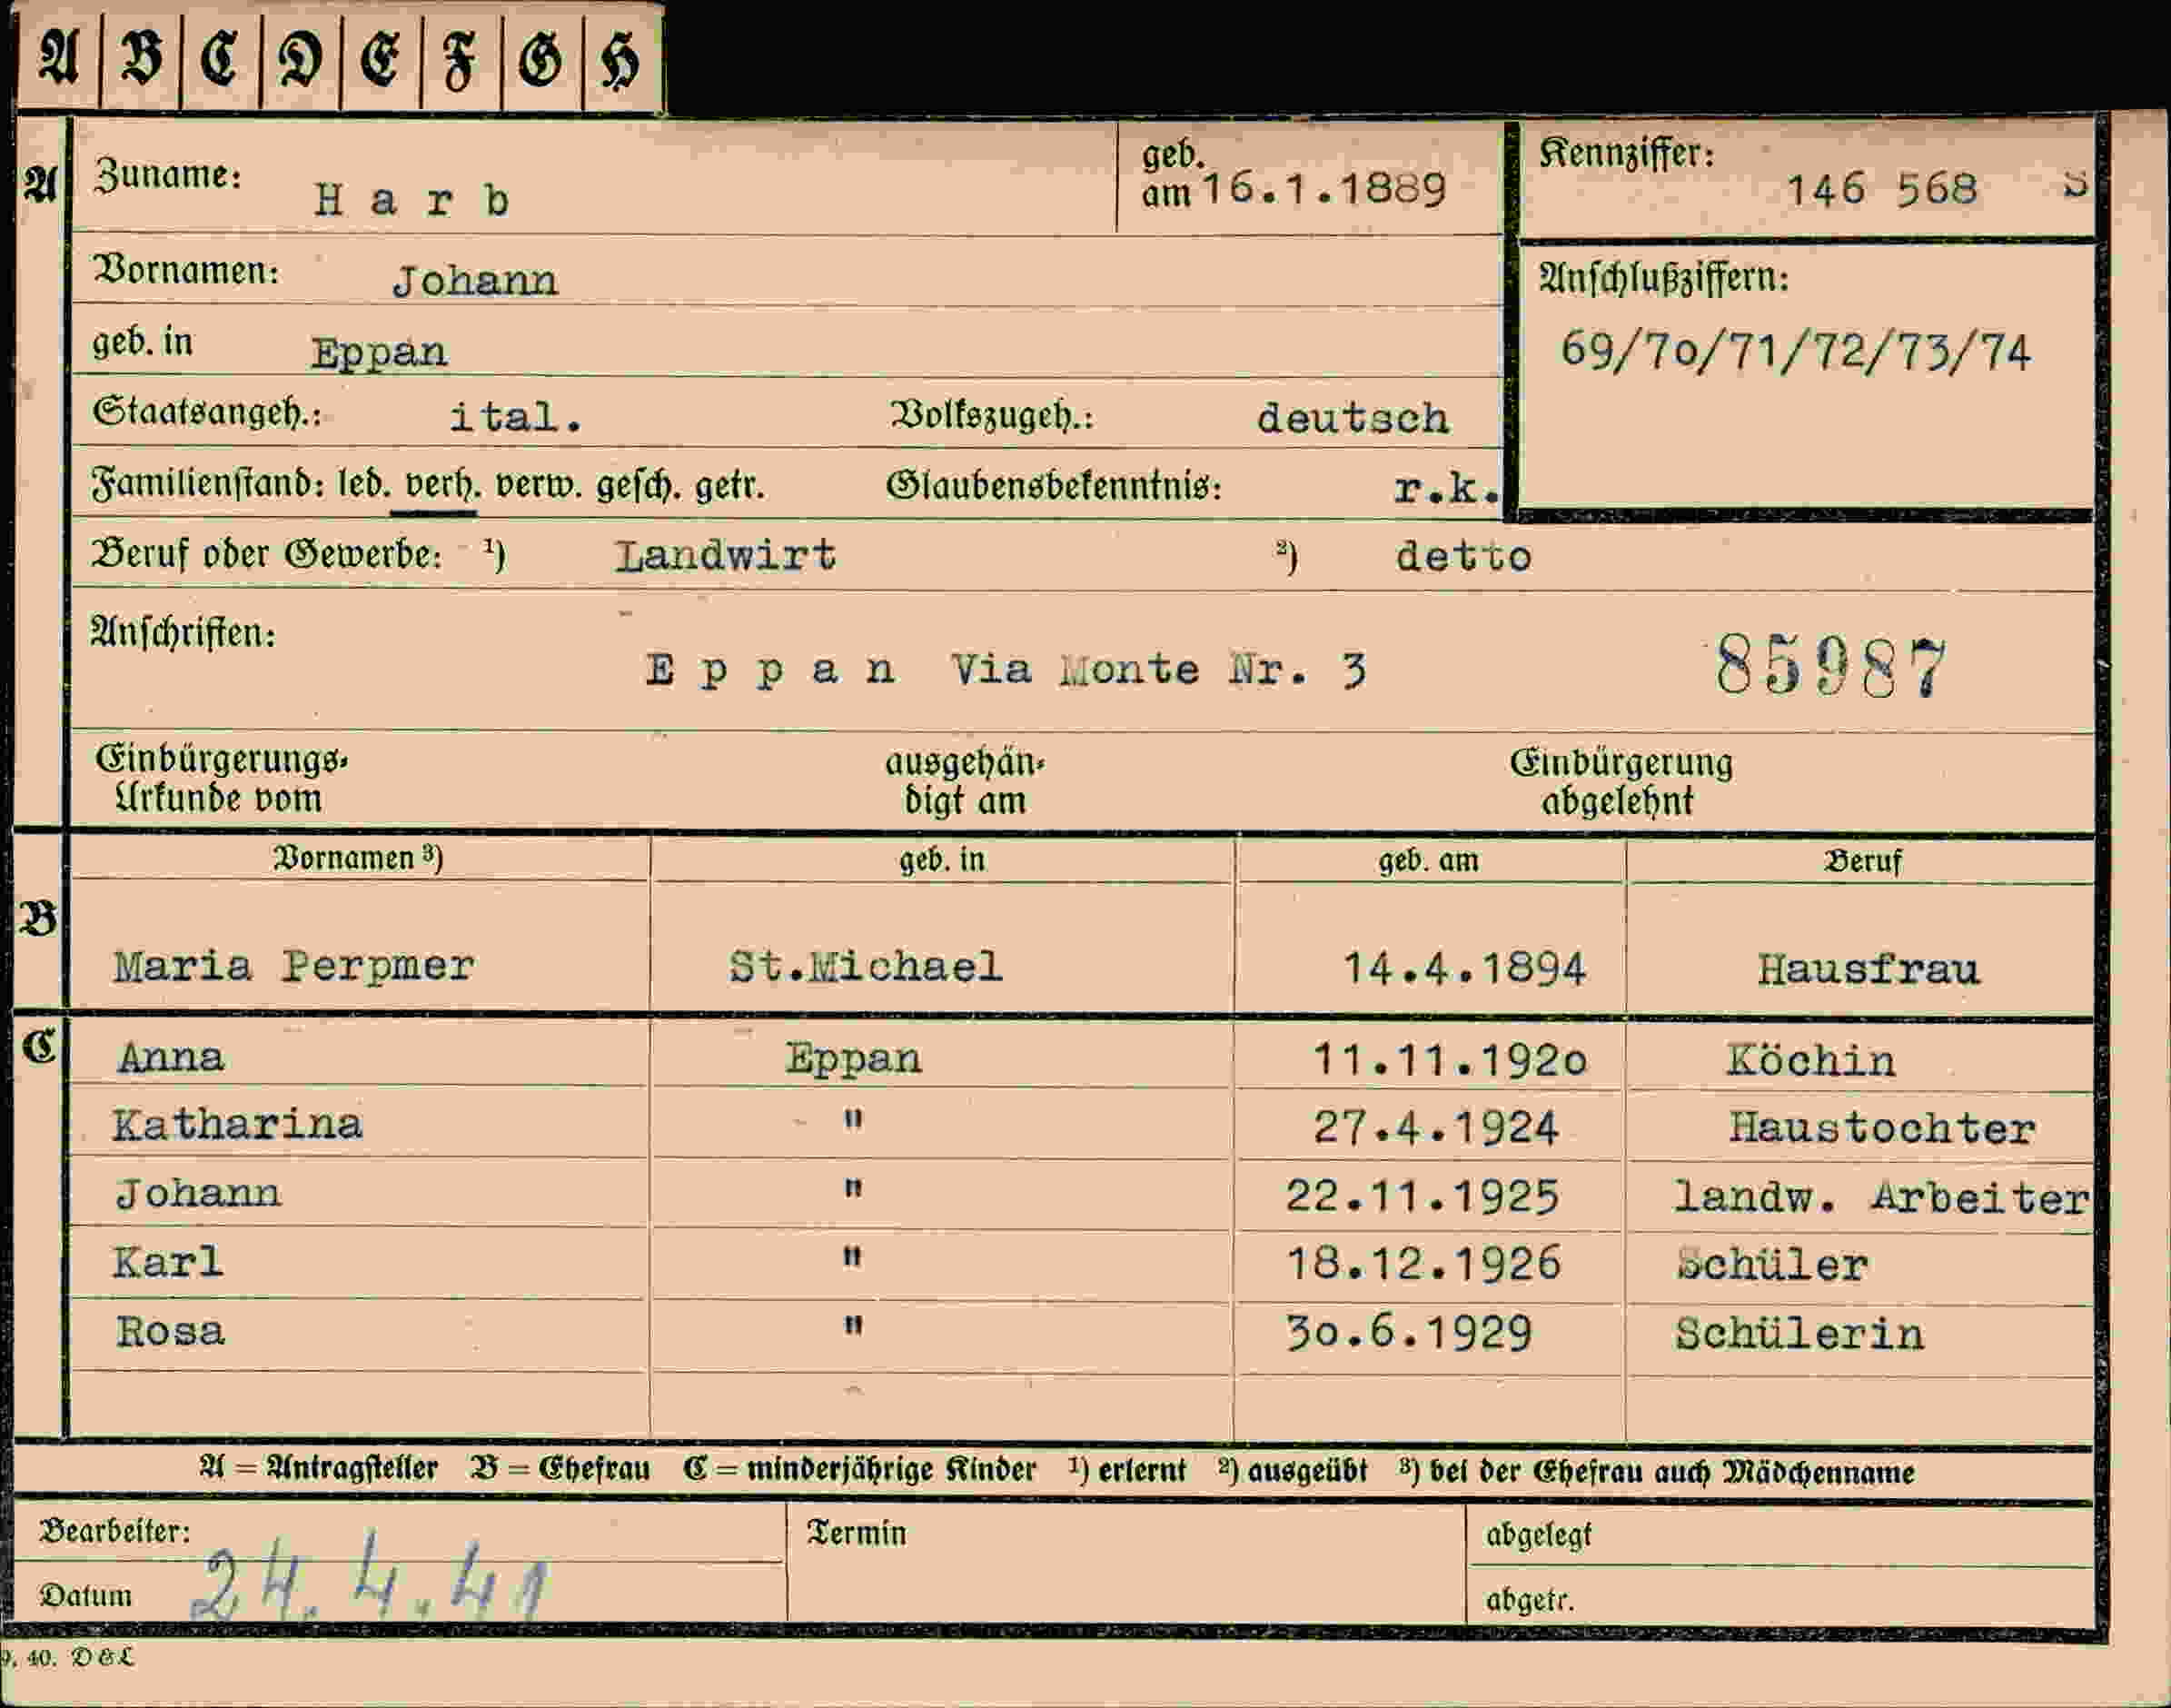 A B C D E F G H
A Zuname: Harb geb. am 16.1.1889 Kennziffer: 146 568 S
Vornamen: Johann Anschlußziffern:
geb. in Eppan 69/70/71/72/73/74
Staatsangeh.: ital. Volkszugeh.: deutsch
Familienstand: led. verh. verw. gesch. getr. Glaubensbekenntnis: r.k.
Beruf oder Gewerbe: ¹) Landwirt ²) detto
Anschriften: Eppan Via Monte Nr. 3 85987
Einbürgerungs- ausgehän- Einbürgerung
Urkunde vom digt am abgelehnt
Vornamen ³) geb. in geb. am Beruf
B
Maria Perpmer St.Michael 14.4.1894 Hausfrau
C Anna Eppan 11.11.1920 Köchin
Katharina " 27.4.1924 Haustochter
Johann " 22.11.1925 landw. Arbeiter
Karl " 18.12.1926 Schüler
Rosa " 30.6.1929 Schülerin
A = Antragsteller B = Ehefrau C = minderjährige Kinder ¹) erlernt ²) ausgeübt ³) bei der Ehefrau auch Mädchenname
Bearbeiter: Termin abgelegt
Datum 24.4.41 abgetr.
9. 40. D & L